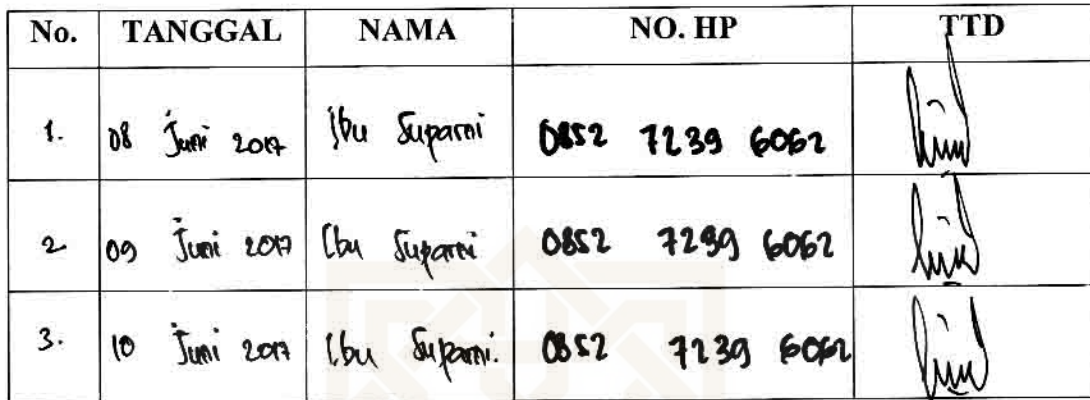 No. TANGGAL NAMA NO. HP TTD
1. 08 Juni 2017 Ibu Suparni 0852 7239 6062
2 09 Juni 2017 Ibu Suparni 0852 7239 6062
3. 10 Juni 2017 Ibu Suparni. 0852 7239 6062